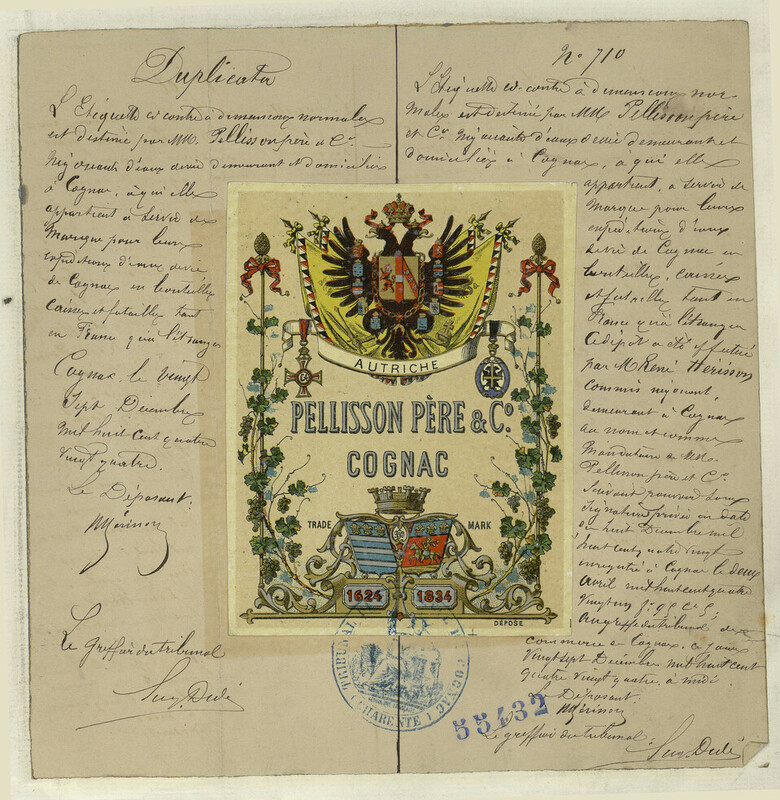 Duplicata
L'Etiquette ci contre à dimensions normales
est destinée par MM. Pellisson père & Cie
Négociants d'eaux de vie demeurant et domiciliés
à Cognac, à qui elle
appartient à servir de
Marque pour leurs
expéditions d'eaux de vie
de Cognac en bouteilles
caisses et futailles tant
en France qu'à l'étranger
Cognac, le vingt
Sept Décembre
mil huit cent quatre
vingt quatre.
Le Déposant:
Hérisson
Le greffier du tribunal
AUTRICHE
PELLISSON PÈRE & Co.
COGNAC
TRADE MARK
1624 1834
DEPOSÉ
TRIBUNAL
COGNAC
(CHARENTE)
No 710
L'Etiquette ci-contre à dimensions nor
males est destinée par MM. Pellisson père
et Cie Négociants d'eaux de vie demeurant et
domiciliés à Cognac, à qui elle
appartient, à servir de
Marque pour leurs
expéditions d'eaux
de vie de Cognac en
bouteilles, caisses
et futailles tant en
France qu'à l'étranger
Ce dépôt a été effectué
par M. René Hérisson
Commis négociant,
demeurant à Cognac
au nom et comme
Mandataire de MM.
Pellisson père et Cie
Suivant pouvoir sous
signature privée en date
du huit Décembre mil
huit cent quatre vingt
enregistré à Cognac le deux
avril mil huit cent quatre
vingt un
au greffe du tribunal de
commerce de Cognac, ce jour
Vingt sept Décembre mil huit cent
quatre vingt quatre, à midi.
Le Déposant:
Hérisson
Le greffier du tribunal:
55432